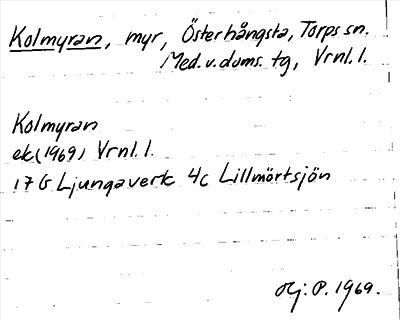 Kolmyran, myr, Österhångsta, Torps sn.
Med. v. doms. tg, Vrnl. l.
Kolmyran
ek (1969) Vrnl. l.
17 G Ljungaverk 4c Lillmörtsjön
P. 1969.